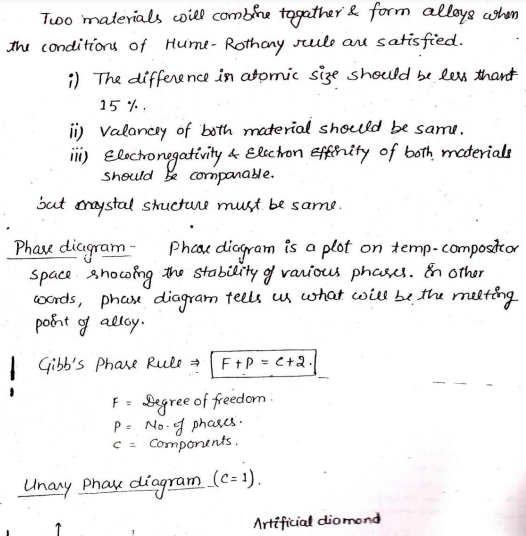 Two materials will combine togather & form alloys when
the conditions of Hume-Rothary rule are satisfied.
i) The difference in atomic size should be less thant
15 %.
ii) Valancey of both material should be same.
iii) Electronegativity & Electron Effinity of both materials
should be comparable.
but crystal structure must be same.
Phase diagram - Phase diagram is a plot on temp-compositor
space showing the stability of various phases. In other
words, phase diagram tells us what will be the melting
point of alloy.
Gibb's Phase Rule ⇒ F + P = C + 2.
F = Degree of freedom.
P = No. of phases.
C = Components.
Unary phase diagram (C=1).
Artificial diomond